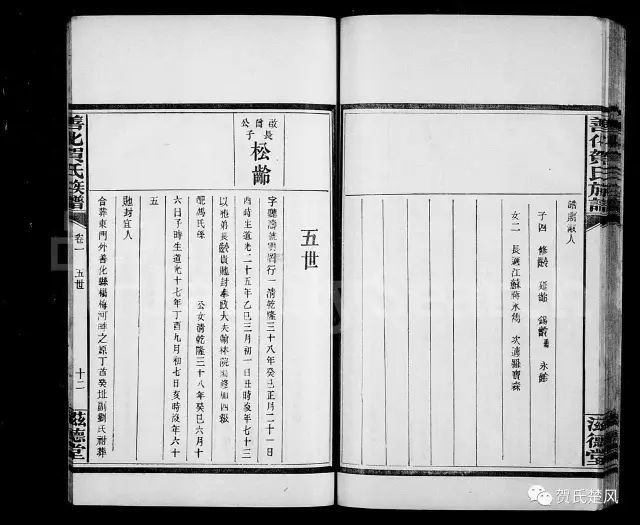 善化賀氏族譜
誥贈淑人
子四 修齡 延齡 錫齡 永齡
女二 長適江蘇蔣永雋 次適羅寶森
滋德堂
五世
啟長
曾子
公
松齡
字聽濤號雲圃行一清乾隆三十八年癸巳正月二十一日
酉時生道光二十五年乙巳三月初一日丑時沒年七十三
以弟長齡貴貤封奉政大夫翰林院編修加四級
配馮氏 公女清乾隆三十八年癸巳六月十
六日子時生道光十七年丁酉九月初七日亥時沒年六十
五
貤封宜人
合葬東門外善化縣楊梅河 之原丁首癸趾副劉氏祔葬
善化賀氏族譜
卷一 五世
十二
滋德堂
贺氏楚风